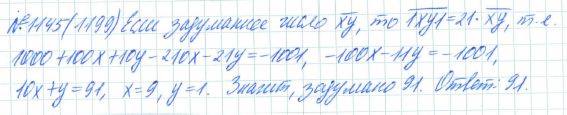 №1145(1199) Если задуманное число xy, то 1xy1=21·xy, т.е.
1000+100x+10y-210x-21y=-1001, -100x-11y=-1001,
10x+y=91, x=9, y=1. Значит, задумано 91. Ответ: 91.